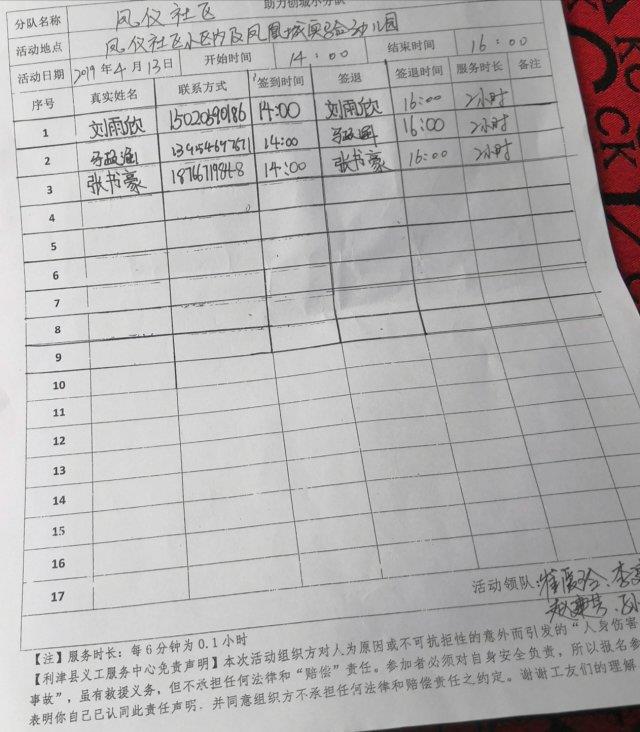 助力创城小分队
分队名称 凤仪社区
活动地点 凤仪社区小区内及凤凰城实验幼儿园
活动日期 2019年4月13日 开始时间 14:00 结束时间 16:00
序号 真实姓名 联系方式 签到时间 签退 签退时间 服务时长 备注
1 刘雨欣 15020690186 14:00 刘雨欣 16:00 2小时
2 14:00 16:00 2小时
3 张书豪 18766719848 14:00 张书豪 16:00 2小时
4
5
6
7
8
9
10
11
12
13
14
15
16
17
活动领队:
【注】服务时长:每6分钟为0.1小时
【利津县义工服务中心免责声明】本次活动组织方对人为原因或不可抗拒性的意外而引发的“人身伤害
事故”,虽有救援义务,但不承担任何法律和“赔偿”责任。参加者必须对自身安全负责,所以报名参
表明你自己已认同此责任声明.并同意组织方不承担任何法律和赔偿责任之约定。谢谢工友们的理解